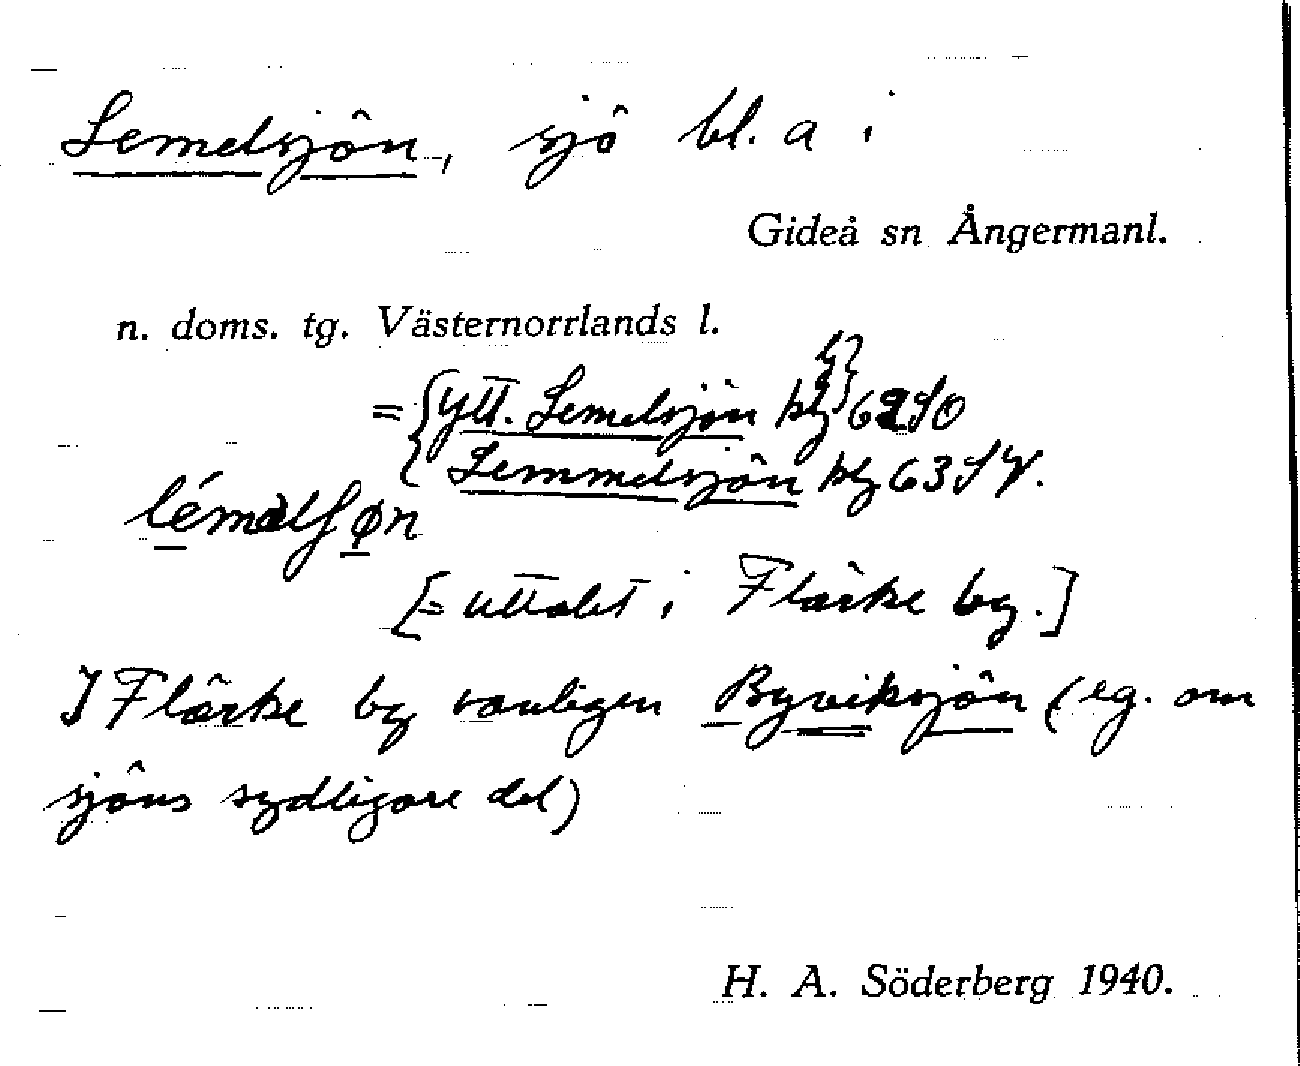 Lemelsjön, sjö bl. a i
Gideå sn Ångermanl.
n. doms. tg. Västernorrlands l.
= { ytt. Lemelsjön klg 62 SO
Lemmelsjön klg 63 SV.
léməlʃøn
[= uttalet i Flärke by.]
I Flärke by vanligen Byviksjön (eg. om
sjöns sydligare del)
H. A. Söderberg 1940.